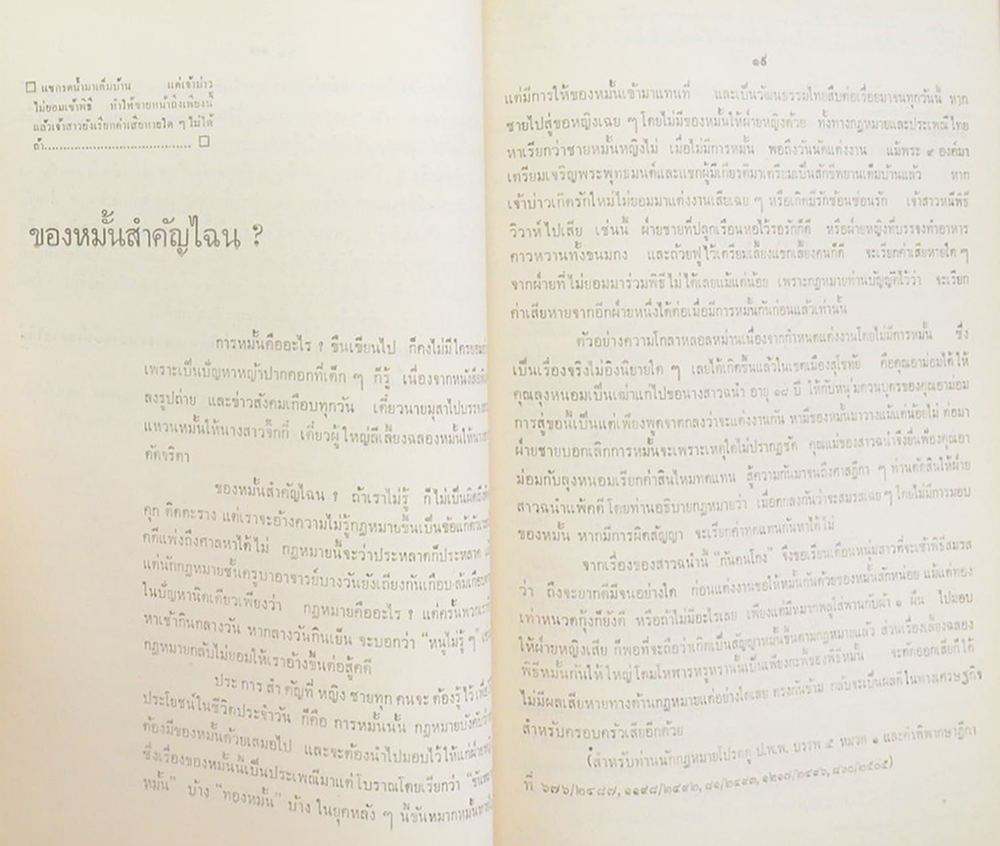 □ แขกรดน้ำมาเต็มบ้าน แต่เจ้าบ่าว
ไม่ยอมเข้าพิธี ทำให้ขายหน้าถึงเพียงนี้
แล้วเจ้าสาวยังเรียกค่าเสียหายใด ๆ ไม่ได้
ถ้า..................................... □
ของหมั้นสำคัญไฉน ?
การหมั้นคืออะไร ? ขืนเขียนไป ก็คงไม่มีใคร
เพราะเป็นปัญหาหญ้าปากคอกที่เด็ก ๆ ก็รู้ เนื่องจากหนังสือ
ลงรูปถ่าย และข่าวสังคมเกือบทุกวัน เดี๋ยวนายมุสาไป
แหวนหมั้นให้นางสาวจุ๊กกี๋ เดี๋ยวผู้ใหญ่ลีเลี้ยงฉลองหมั้นให้
ดัดจริตา
ของหมั้นสำคัญไฉน ? ถ้าเราไม่รู้ ก็ไม่เป็นผิดถึง
คุก ติดตะราง แต่เราจะอ้างความไม่รู้กฎหมายขึ้นเป็นข้อแก้ตัว
คดีแพ่งถึงศาลหาได้ไม่ กฎหมายนี้จะว่าประหลาดก็ประหลาด
แต่นักกฎหมายชั้นครูบาอาจารย์บางวันยังเถียงกันเกือบล้มเกือบ
ในปัญหานิดเดียวเพียงว่า กฎหมายคืออะไร ? แต่ครั้นพวกเรา
หาเช้ากินกลางวัน หากลางวันกินเย็น จะบอกว่า “หนูไม่รู้ ๆ”
กฎหมายกลับไม่ยอมให้เราอ้างขึ้นต่อสู้คดี
ประการสำคัญที่ หญิง ชายทุก คนจะ ต้องรู้ไว้
ประโยชน์ในชีวิตประจำวัน ก็คือ การหมั้นนั้น กฎหมายบังคับ
ต้องมีของหมั้นด้วยเสมอไป และจะต้องนำไปมอบไว้ให้แก่ฝ่าย
ซึ่งเรื่องของหมั้นนี้เป็นประเพณีมาแต่โบราณโดยเรียกว่า
หมั้น” บ้าง “ทองหมั้น” บ้าง ในยุคหลัง ๆ นี้ขันหมากหมั้น
๑๙
แต่มีการให้ของหมั้นเข้ามาแทนที่ และเป็นวัฒนธรรมไทยสืบต่อเรื่อยมาจนทุกวันนี้ หาก
ชายไปสู่ขอหญิงเฉย ๆ โดยไม่มีของหมั้นให้ฝ่ายหญิงด้วย ทั้งทางกฎหมายและประเพณีไทย
หาเรียกว่าชายหมั้นหญิงไม่ เมื่อไม่มีการหมั้น พอถึงวันนัดแต่งงาน แม้พระ ๙ องค์มา
เตรียมเจริญพระพุทธมนต์และแขกผู้มีเกียรติมาเตรียมเป็นสักขีพยานเต็มบ้านแล้ว หาก
เจ้าบ่าวเกิดรักใหม่ไม่ยอมมาแต่งงานเสียเฉย ๆ หรือเกิดมีรักซ้อนซ่อนรัก เจ้าสาวหนีพิธี
วิวาห์ไปเสีย เช่นนี้ ฝ่ายชายที่ปลูกเรือนหอไว้รอรักก็ดี หรือฝ่ายหญิงที่บรรจงทำอาหาร
คาวหวานทั้งขนมกง และถ้วยฟูไว้เตรียมเลี้ยงแขกเลี้ยงคนก็ดี จะเรียกค่าเสียหายใด ๆ
จากฝ่ายที่ไม่ยอมมาร่วมพิธีไม่ได้เลยแม้แต่น้อย เพราะกฎหมายท่านบัญญัติไว้ว่า จะเรียก
ค่าเสียหายจากอีกฝ่ายหนึ่งได้ต่อเมื่อมีการหมั้นกันก่อนแล้วเท่านั้น
ตัวอย่างความโกลาหลอลหม่านเนื่องจากกำหนดแต่งงานโดยไม่มีการหมั้น ซึ่ง
เป็นเรื่องจริงไม่อิงนิยายใด ๆ เลยได้เกิดขึ้นแล้วในเขตเมืองสุโขทัย คือคุณอาม่อมได้ให้
คุณลุงหนอมเป็นเฒ่าแก่ไปขอนางสาวฉนำ อายุ ๑๘ ปี ให้กับหนุ่มควนบุตรของคุณอาม่อม
การสู่ขอนี้เป็นแต่เพียงพูดจาตกลงว่าจะแต่งงานกัน หามีของหมั้นมาวางแม้แต่น้อยไม่ ต่อมา
ฝ่ายชายบอกเลิกการหมั้นจะเพราะเหตุใดไม่ปรากฏชัด คุณแม่ของสาวฉนำจึงยื่นฟ้องคุณอา
ม่อมกับลุงหนอมเรียกค่าสินไหมทดแทน สู้ความกันมาจนถึงศาลฎีกา ๆ ท่านตัดสินให้ฝ่าย
สาวฉนำแพ้คดี โดยท่านอธิบายกฎหมายว่า เมื่อตกลงกันว่าจะสมรสเฉย ๆ โดยไม่มีการมอบ
ของหมั้น หากมีการผิดสัญญา จะเรียกค่าทดแทนกันหาได้ไม่
จากเรื่องของสาวฉนำนี้ “ก้นคนโกง” จึงขอเรียนเตือนหนุ่มสาวที่จะเข้าพิธีสมรส
ว่า ถึงจะยากดีมีจนอย่างใด ก่อนแต่งงานขอให้หมั้นกันด้วยของหมั้นสักหน่อย แม้แต่ทอง
เท่าหนวดกุ้งก็ยังดี หรือถ้าไม่มีอะไรเลย เพียงแต่มีหมากพลูใส่พานกับผ้า ๑ ผืน ไปมอบ
ให้ฝ่ายหญิงเสีย ก็พอที่จะถือว่าเกิดเป็นสัญญาหมั้นขึ้นตามกฎหมายแล้ว ส่วนเรื่องเลี้ยงฉลอง
พิธีหมั้นกันให้ใหญ่โตมโหฬารหรูหรานั้นเป็นเพียงกะพี้ของพิธีหมั้น จะตัดออกเสียก็ได้
ไม่มีผลเสียหายทางด้านกฎหมายแต่อย่างใดเลย ตรงกันข้าม กลับจะเป็นผลดีในทางเศรษฐกิจ
สำหรับครอบครัวเสียอีกด้วย
(สำหรับท่านนักกฎหมายโปรดดู ป.พ.พ. บรรพ ๕ หมวด ๑ และคำพิพากษาฎีกา
ที่ ๖๗๖/๒๔๘๗, ๑๑๙๘/๒๔๙๒, ๘๑/๒๔๙๓, ๑๒๑๗/๒๔๙๖, ๘๖๐/๒๕๐๕)